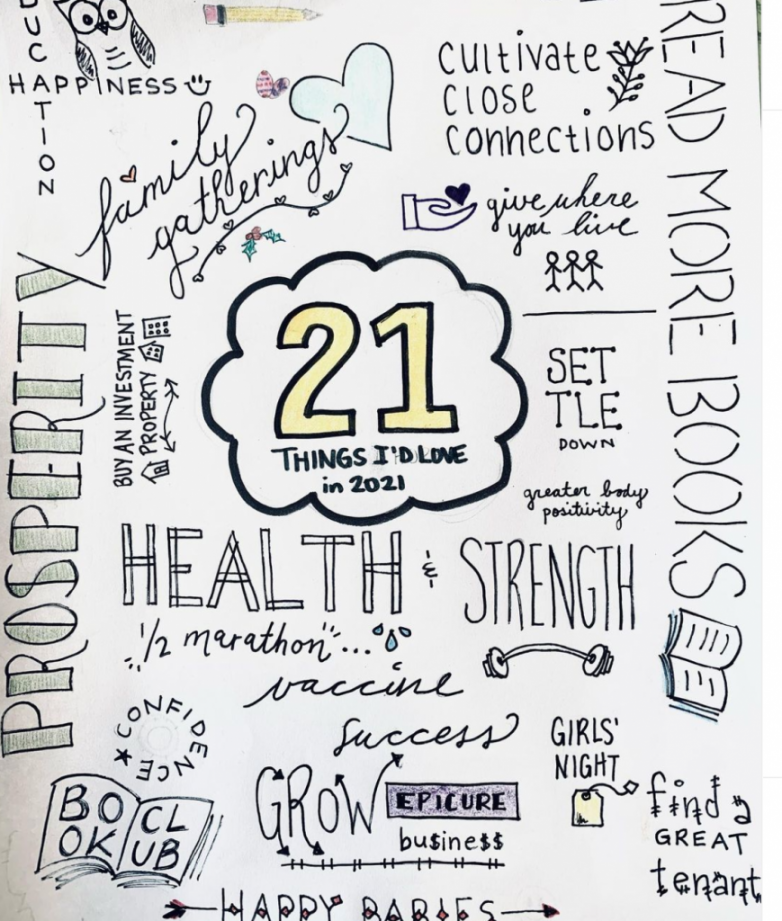 DUCATION
HAPPINESS
family
gatherings
cultivate
close
connections
give where
you live
READ MORE BOOKS
PROSPERITY
BUY AN INVESTMENT
PROPERTY
21
THINGS I'D LOVE
in 2021
SET
TLE
DOWN
greater body
positivity
HEALTH & STRENGTH
"1/2 marathon"...
vaccine
success
CONFIDENCE
GIRLS'
NIGHT
BO
OK
CL
UB
GROW EPICURE
bu$ine$$
find a
GREAT
tenant
HAPPY BABIES